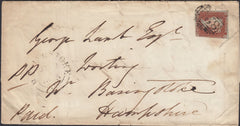 George Lamb Esqr
Worting
PP
Nr Basingstoke
Paid.
Hampshire